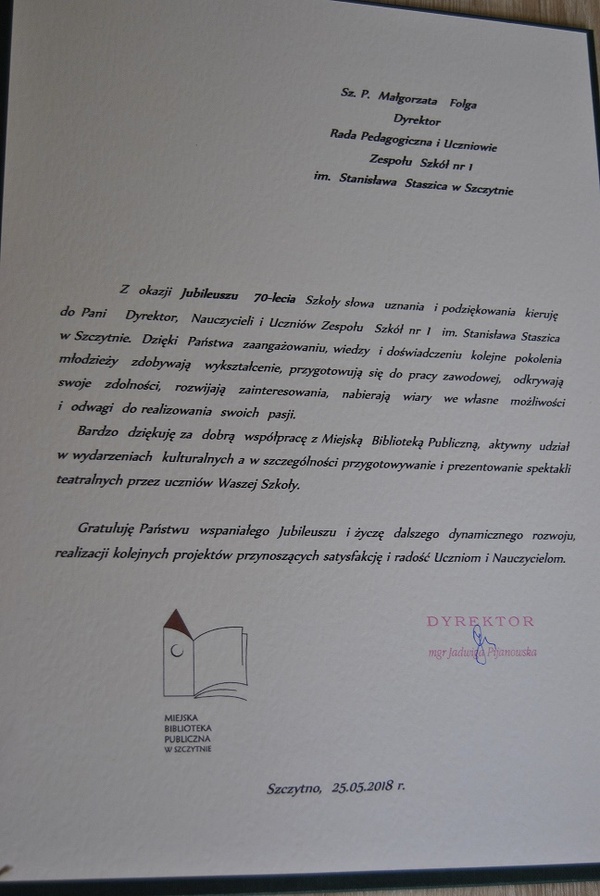 Sz. P. Małgorzata Folga
Dyrektor
Rada Pedagogiczna i Uczniowie
Zespołu Szkół nr 1
im. Stanisława Staszica w Szczytnie
Z okazji Jubileuszu 70-lecia Szkoły słowa uznania i podziękowania kieruję
do Pani Dyrektor, Nauczycieli i Uczniów Zespołu Szkół nr 1 im. Stanisława Staszica
w Szczytnie. Dzięki Państwa zaangażowaniu, wiedzy i doświadczeniu kolejne pokolenia
młodzieży zdobywają wykształcenie, przygotowują się do pracy zawodowej, odkrywają
swoje zdolności, rozwijają zainteresowania, nabierają wiary we własne możliwości
i odwagi do realizowania swoich pasji.
Bardzo dziękuję za dobrą współpracę z Miejską Biblioteką Publiczną, aktywny udział
w wydarzeniach kulturalnych a w szczególności przygotowywanie i prezentowanie spektakli
teatralnych przez uczniów Waszej Szkoły.
Gratuluję Państwu wspaniałego Jubileuszu i życzę dalszego dynamicznego rozwoju,
realizacji kolejnych projektów przynoszących satysfakcję i radość Uczniom i Nauczycielom.
DYREKTOR
mgr Jadwiga Pijanowska
MIEJSKA
BIBLIOTEKA
PUBLICZNA
W SZCZYTNIE
Szczytno, 25.05.2018 r.